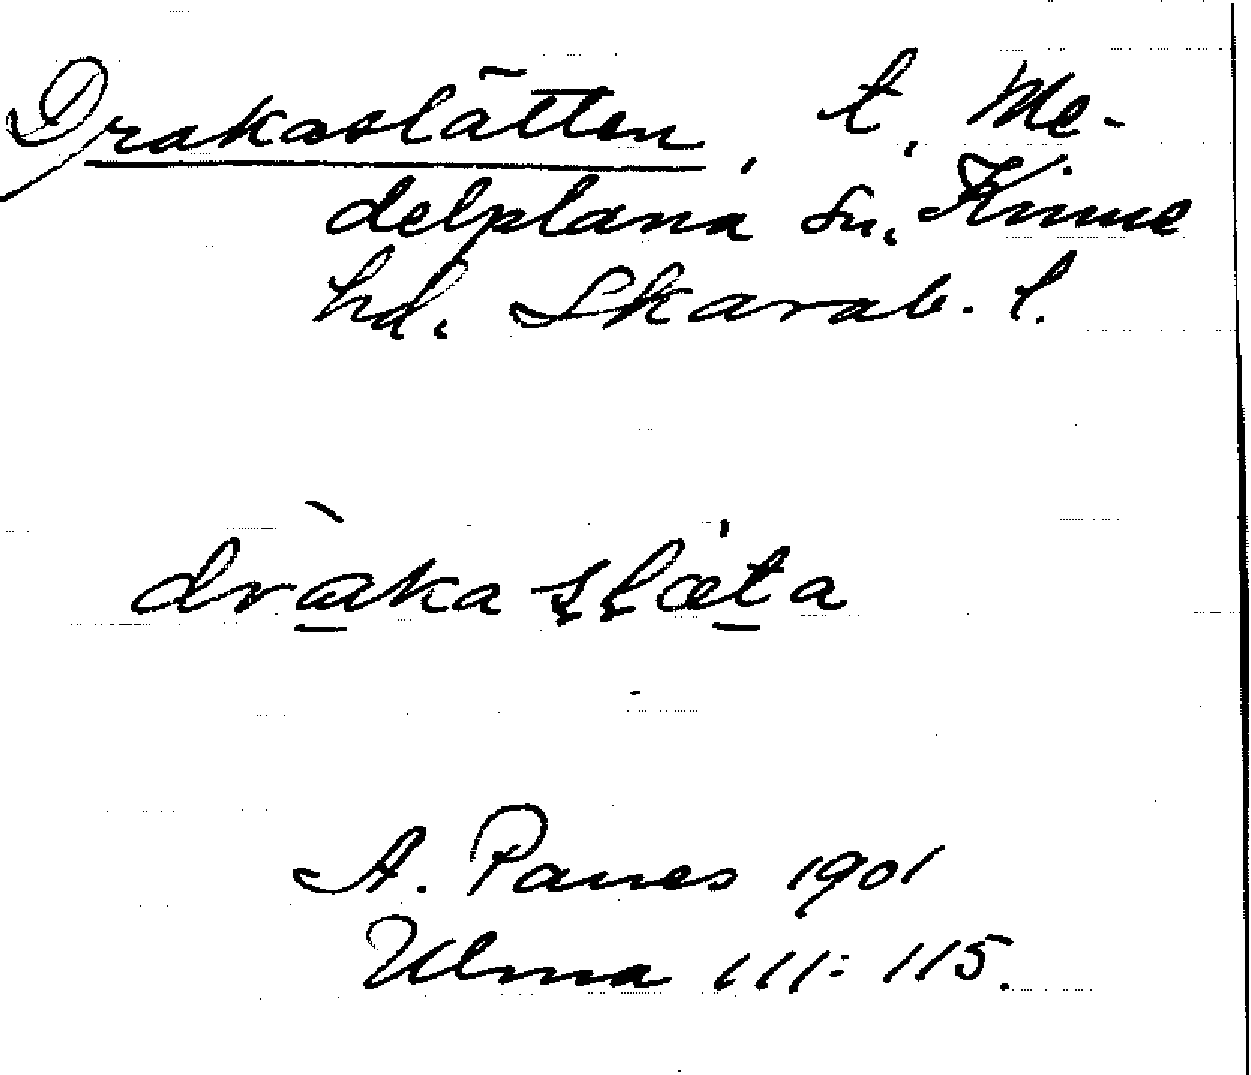 Drakaslätten, t, Me-
delplana sn, Kinne
hd. Skarab. l.
dràka slæta
A. Panes 1901
Ulma 111: 115.